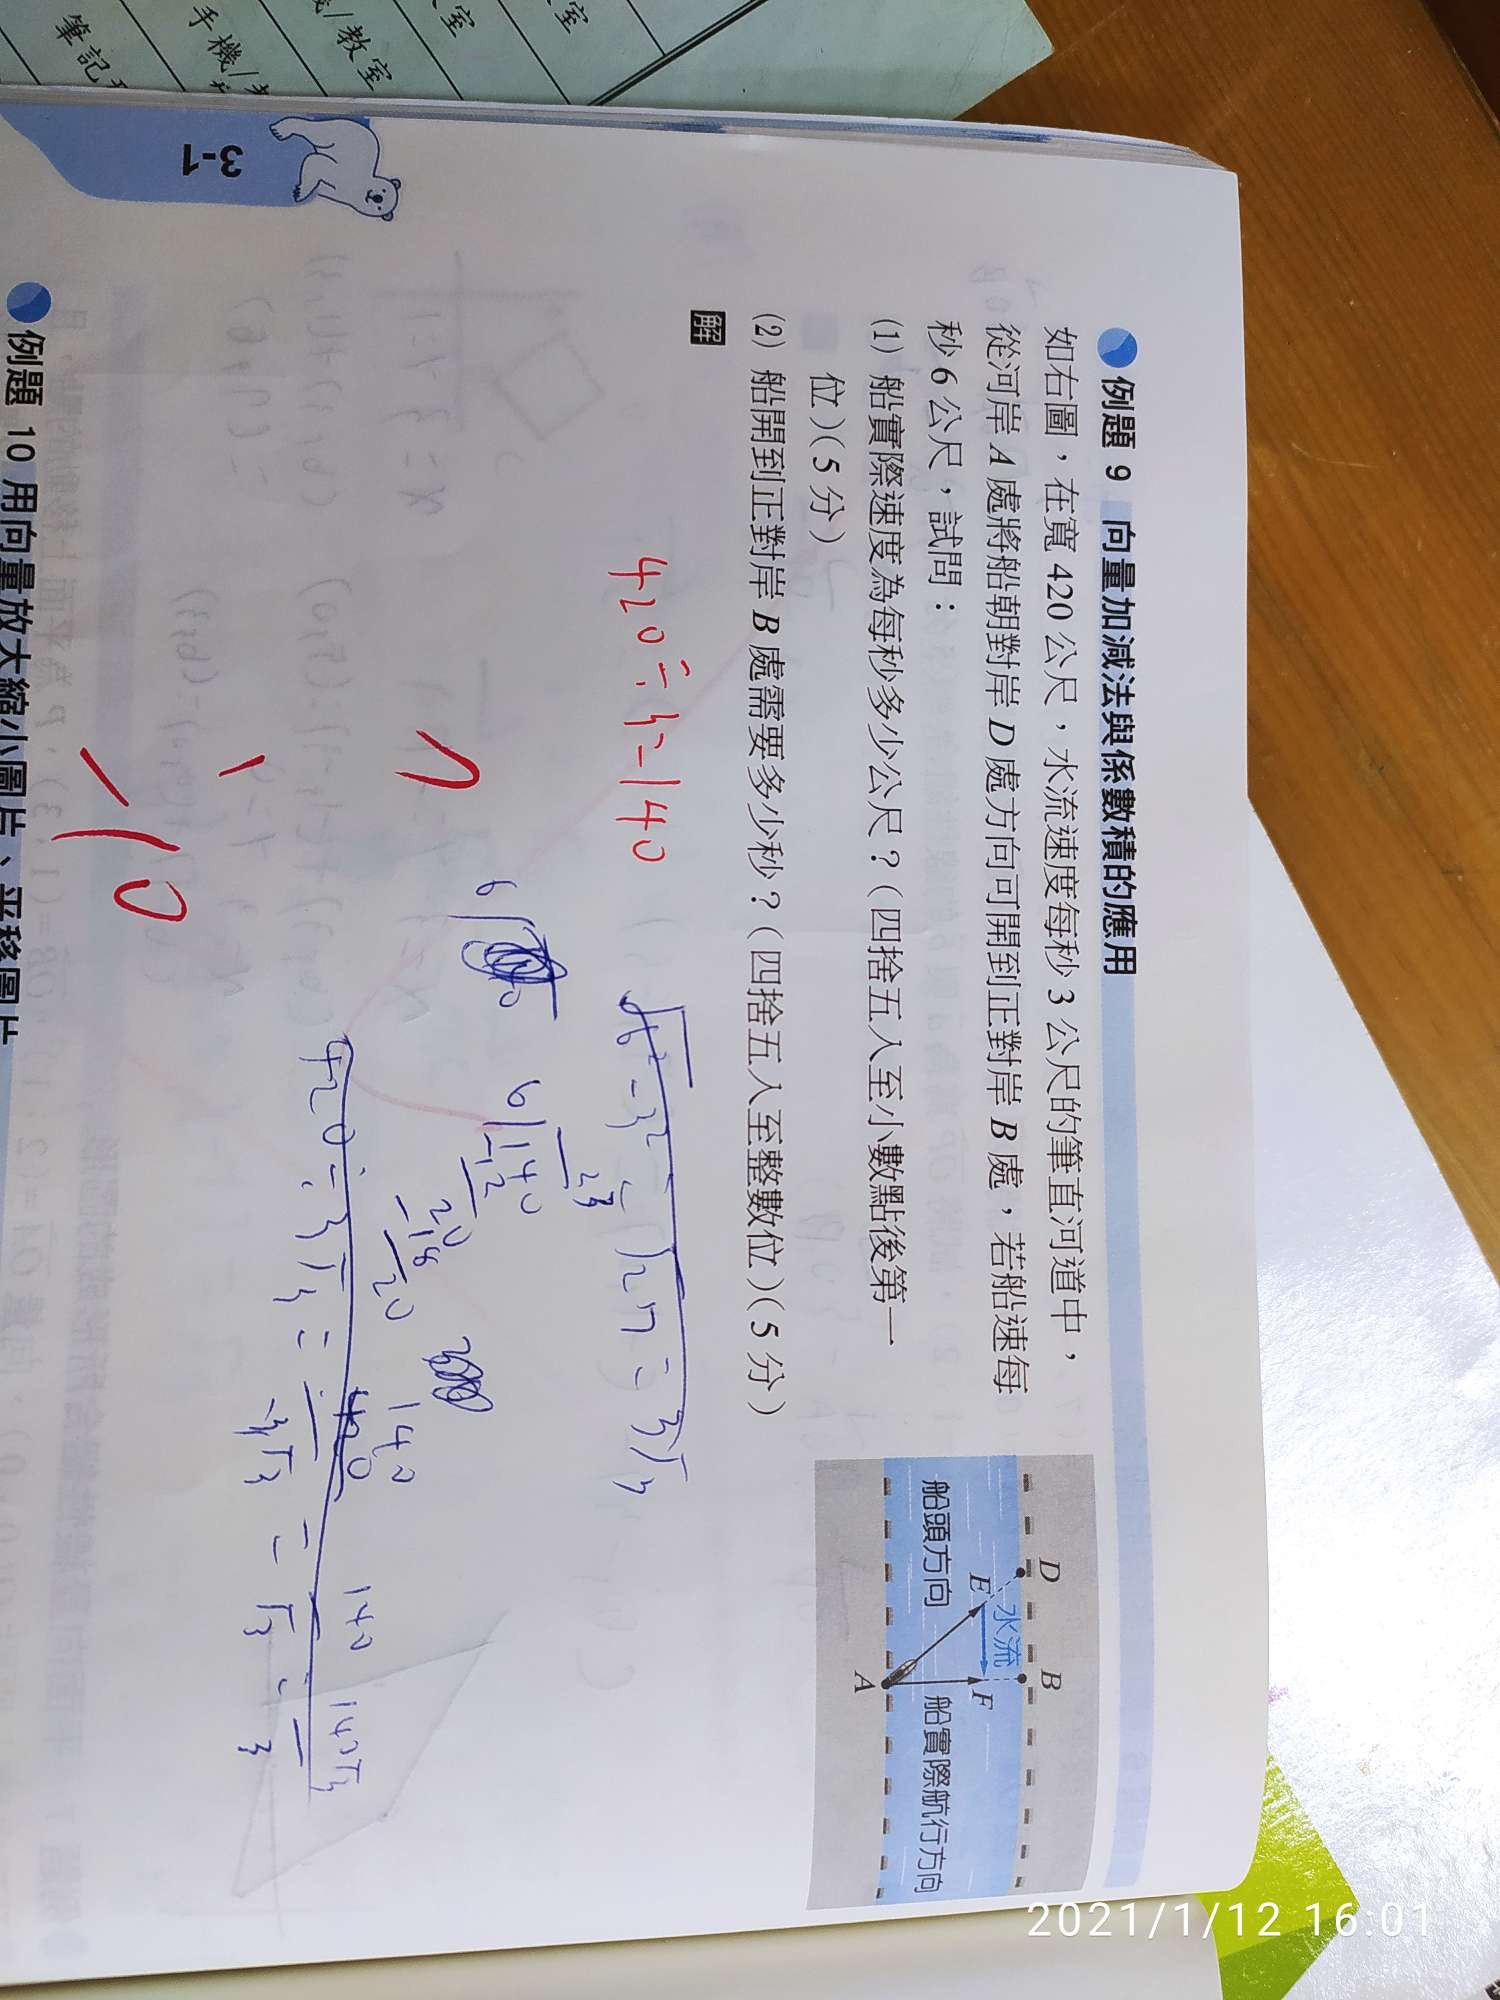 筆記
手機/
/教室
室
室
3-1
例題 9 向量加減法與係數積的應用
如右圖，在寬 420 公尺，水流速度每秒 3 公尺的筆直河道中，
從河岸 A 處將船朝對岸 D 處方向可開到正對岸 B 處，若船速每
秒 6 公尺，試問：
(1) 船實際速度為每秒多少公尺？(四捨五入至小數點後第一
位)(5 分)
(2) 船開到正對岸 B 處需要多少秒？(四捨五入至整數位)(5 分)
解
D
B
E
水流
F
船頭方向
船實際航行方向
A
420÷3=140
√6²-3² = √27 = 3√3
6
23
6 140
-12
20
-18
20
140
420÷3√3 = 420/3√3 = 140/√3 = 140√3/3
-10
例題 10 用向量放大縮小圖片、平移圖片
2021/1/12 16:01